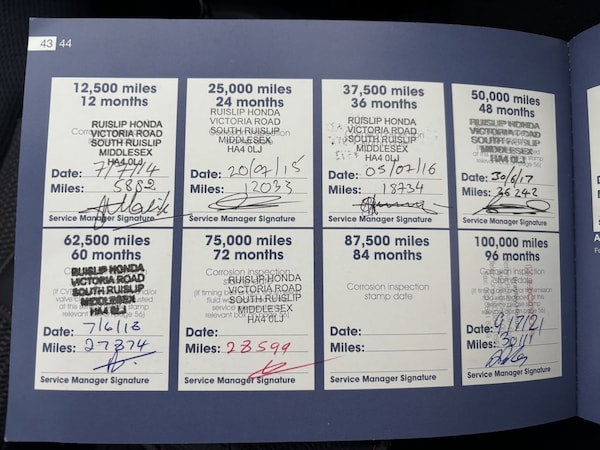 43 44
12,500 miles
12 months
RUISLIP HONDA
VICTORIA ROAD
SOUTH RUISLIP
MIDDLESEX
HA4 0LJ
Date: 7/7/14
Miles: 5882
Service Manager Signature
25,000 miles
24 months
RUISLIP HONDA
VICTORIA ROAD
SOUTH RUISLIP
MIDDLESEX
HA4 0LJ
Date: 20/07/15
Miles: 12033
Service Manager Signature
37,500 miles
36 months
RUISLIP HONDA
VICTORIA ROAD
SOUTH RUISLIP
MIDDLESEX
HA4 0LJ
Date: 05/07/16
Miles: 18734
Service Manager Signature
50,000 miles
48 months
RUISLIP HONDA
VICTORIA ROAD
SOUTH RUISLIP
MIDDLESEX
HA4 0LJ
Date: 30/6/17
Miles: 26242
Service Manager Signature
62,500 miles
60 months
RUISLIP HONDA
VICTORIA ROAD
SOUTH RUISLIP
MIDDLESEX
HA4 0LJ
Date: 7/6/18
Miles: 27874
Service Manager Signature
75,000 miles
72 months
Corrosion inspection
RUISLIP HONDA
VICTORIA ROAD
SOUTH RUISLIP
MIDDLESEX
HA4 0LJ
Date:
Miles: 28599
Service Manager Signature
87,500 miles
84 months
Corrosion inspection
stamp date
Date:
Miles:
Service Manager Signature
100,000 miles
96 months
Corrosion inspection
stamp date
Date:
Miles:
Service Manager Signature